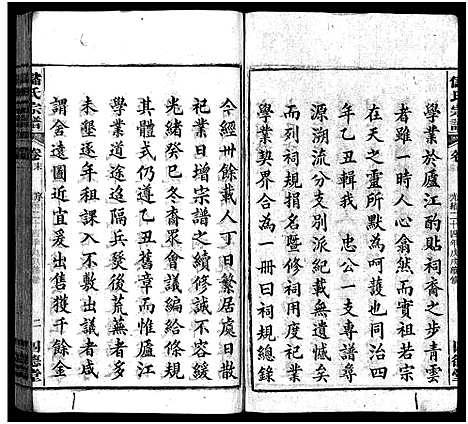 學業於廬江酌貼祠斋之步青雲
者雖一時人心翕然而實祖若宗
在天之靈所默為呵護也同治四
年乙丑夫我 忠公一支專譜成
源溯流分宗別派紀載無遺憾矣
而列祠規捐名暨修祠各費祠田
學業契約合為一冊曰祠規總錄
今經卅餘載人丁日繁居處日散
祀業日增宗譜之續修誠不容緩
光緒癸巳冬斋眾會議編給條規
其體式仍遵乙丑舊章而惟廬江
學業道途迢隔兵燹後荒蕪者多
未墾逐年租課入不敷出議者咸
謂舍遠圖近宜爰出售獲千餘金
儲氏宗譜 卷末 序 二 四德堂
儲氏宗譜 卷 光緒二十四年戊戌續修